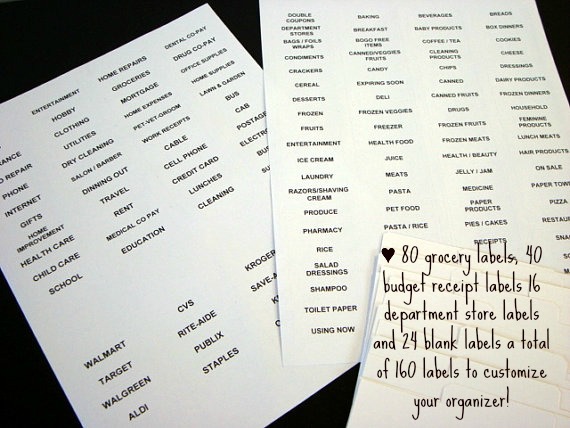 ENTERTAINMENT HOME REPAIRS DENTAL CO-PAY
HOBBY GROCERIES DRUG CO-PAY
CLOTHING MORTGAGE OFFICE SUPPLIES
UTILITIES HOME EXPENSES HOME SUPPLIES
REPAIR DRY CLEANING PET-VET-GROOM LAWN & GARDEN
PHONE SALON / BARBER WORK RECEIPTS BUS
INTERNET DINNING OUT CABLE CAB
GIFTS TRAVEL CELL PHONE
HOME
IMPROVEMENT RENT CREDIT CARD
HEALTH CARE MEDICAL CO PAY LUNCHES
CHILD CARE EDUCATION CLEANING
SCHOOL
WALMART CVS KROGER
TARGET RITE-AIDE
WALGREEN PUBLIX
ALDI STAPLES
DOUBLE
COUPONS BAKING BEVERAGES BREADS
DEPARTMENT
STORES BREAKFAST BABY PRODUCTS BOX DINNERS
BAGS / FOILS
WRAPS BOGO FREE
ITEMS COFFEE / TEA COOKIES
CONDIMENTS CANNED/VEGGIES
FRUITS CLEANING
PRODUCTS CHEESE
CRACKERS CANDY CHIPS DRESSINGS
CEREAL EXPIRING SOON CANNED DAIRY PRODUCTS
DESSERTS DELI CANNED FRUITS FROZEN DINNERS
FROZEN FROZEN VEGGIES DRUGS HOUSEHOLD
FRUITS FREEZER FROZEN FRUITS FEMININE
PRODUCTS
ENTERTAINMENT HEALTH FOOD FROZEN MEATS LUNCH MEATS
ICE CREAM JUICE HEALTH / BEAUTY HAIR PRODUCTS
LAUNDRY MEATS JELLY / JAM ON SALE
RAZORS/SHAVING
CREAM PASTA MEDICINE PAPER
PRODUCE PET FOOD PAPER
PRODUCTS PIZZA
PHARMACY PASTA / RICE PIES / CAKES
RICE RECEIPTS
SALAD
DRESSINGS
SHAMPOO
TOILET PAPER
USING NOW
♥ 80 grocery labels, 40
budget receipt labels 16
department store labels
and 24 blank labels a total
of 160 labels to customize
your organizer!